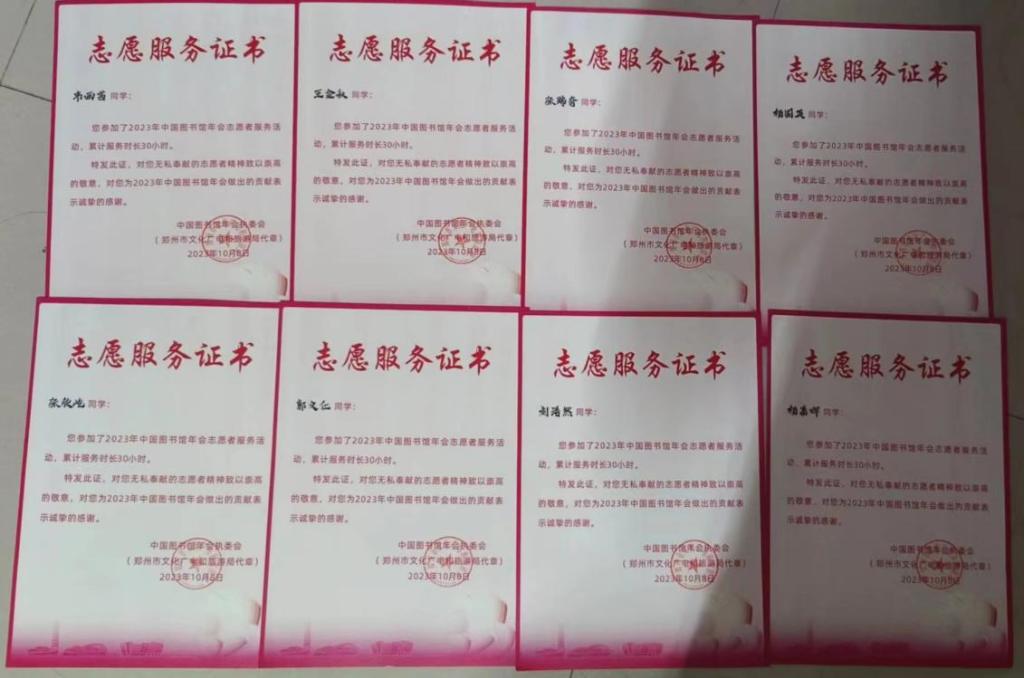 志愿服务证书
同学：
您参加了2023年中国图书馆年会志愿者服务活
动，累计服务时长30小时。
特发此证，对您无私奉献的志愿者精神致以崇高
的敬意，对您为2023年中国图书馆年会做出的贡献表
示诚挚的感谢。
中国图书馆年会执委会
（郑州市文化广电和旅游局代章）
2023年10月8日
志愿服务证书
同学：
您参加了2023年中国图书馆年会志愿者服务活
动，累计服务时长30小时。
特发此证，对您无私奉献的志愿者精神致以崇高
的敬意，对您为2023年中国图书馆年会做出的贡献表
示诚挚的感谢。
中国图书馆年会执委会
（郑州市文化广电和旅游局代章）
2023年10月8日
志愿服务证书
同学：
您参加了2023年中国图书馆年会志愿者服务活
动，累计服务时长30小时。
特发此证，对您无私奉献的志愿者精神致以崇高
的敬意，对您为2023年中国图书馆年会做出的贡献表
示诚挚的感谢。
中国图书馆年会执委会
（郑州市文化广电和旅游局代章）
2023年10月8日
志愿服务证书
同学：
您参加了2023年中国图书馆年会志愿者服务活
动，累计服务时长30小时。
特发此证，对您无私奉献的志愿者精神致以崇高
的敬意，对您为2023年中国图书馆年会做出的贡献表
示诚挚的感谢。
中国图书馆年会执委会
（郑州市文化广电和旅游局代章）
2023年10月8日
志愿服务证书
同学：
您参加了2023年中国图书馆年会志愿者服务活
动，累计服务时长30小时。
特发此证，对您无私奉献的志愿者精神致以崇高
的敬意，对您为2023年中国图书馆年会做出的贡献表
示诚挚的感谢。
中国图书馆年会执委会
（郑州市文化广电和旅游局代章）
2023年10月8日
志愿服务证书
同学：
您参加了2023年中国图书馆年会志愿者服务活
动，累计服务时长30小时。
特发此证，对您无私奉献的志愿者精神致以崇高
的敬意，对您为2023年中国图书馆年会做出的贡献表
示诚挚的感谢。
中国图书馆年会执委会
（郑州市文化广电和旅游局代章）
2023年10月8日
志愿服务证书
刘浩然 同学：
您参加了2023年中国图书馆年会志愿者服务活
动，累计服务时长30小时。
特发此证，对您无私奉献的志愿者精神致以崇高
的敬意，对您为2023年中国图书馆年会做出的贡献表
示诚挚的感谢。
中国图书馆年会执委会
（郑州市文化广电和旅游局代章）
2023年10月8日
志愿服务证书
同学：
您参加了2023年中国图书馆年会志愿者服务活
动，累计服务时长30小时。
特发此证，对您无私奉献的志愿者精神致以崇高
的敬意，对您为2023年中国图书馆年会做出的贡献表
示诚挚的感谢。
中国图书馆年会执委会
（郑州市文化广电和旅游局代章）
2023年10月8日